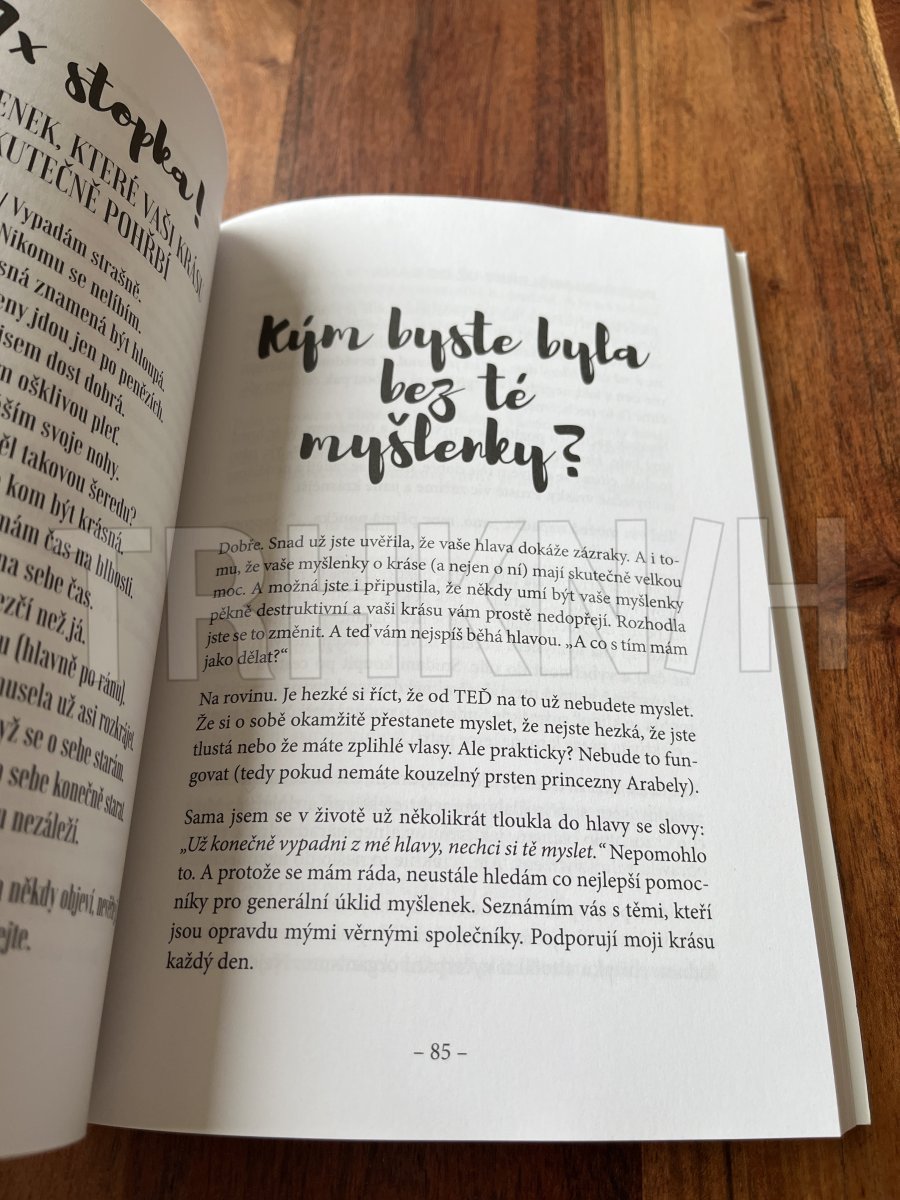 stopka!
KTERÉ VAŠI KRÁSU
POHŘBÍ
Vypadám strašně.
Nikomu se nelíbím.
znamená být hloupá.
jdou jen po penězích.
jsem dost dobrá.
ošklivou pleť.
svoje nohy.
takovou šeredu?
kom být krásná.
mám čas na blbosti.
na sebe čas.
než já.
(hlavně po ránu).
musela už asi rozkrájet.
se o sebe starám.
sebe konečně starat.
nezáleží.
někdy objeví,
Kým byste byla
bez té
myšlenky?
Dobře. Snad už jste uvěřila, že vaše hlava dokáže zázraky. A i to-
mu, že vaše myšlenky o kráse (a nejen o ní) mají skutečně velkou
moc. A možná jste i připustila, že někdy umí být vaše myšlenky
pěkně destruktivní a vaši krásu vám prostě nedopřejí. Rozhodla
jste se to změnit. A teď vám nejspíš běhá hlavou. „A co s tím mám
jako dělat?“
Na rovinu. Je hezké si říct, že od TEĎ na to už nebudete myslet.
Že si o sobě okamžitě přestanete myslet, že nejste hezká, že jste
tlustá nebo že máte zplihlé vlasy. Ale prakticky? Nebude to fun-
govat (tedy pokud nemáte kouzelný prsten princezny Arabely).
Sama jsem se v životě už několikrát tloukla do hlavy se slovy:
„Už konečně vypadni z mé hlavy, nechci si tě myslet.“ Nepomohlo
to. A protože se mám ráda, neustále hledám co nejlepší pomoc-
níky pro generální úklid myšlenek. Seznámím vás s těmi, kteří
jsou opravdu mými věrnými společníky. Podporují moji krásu
každý den.
– 85 –
TRHKNIH